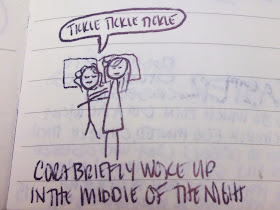 TICKLE TICKLE TICKLE
CORA BRIEFLY WOKE UP
IN THE MIDDLE OF THE NIGHT